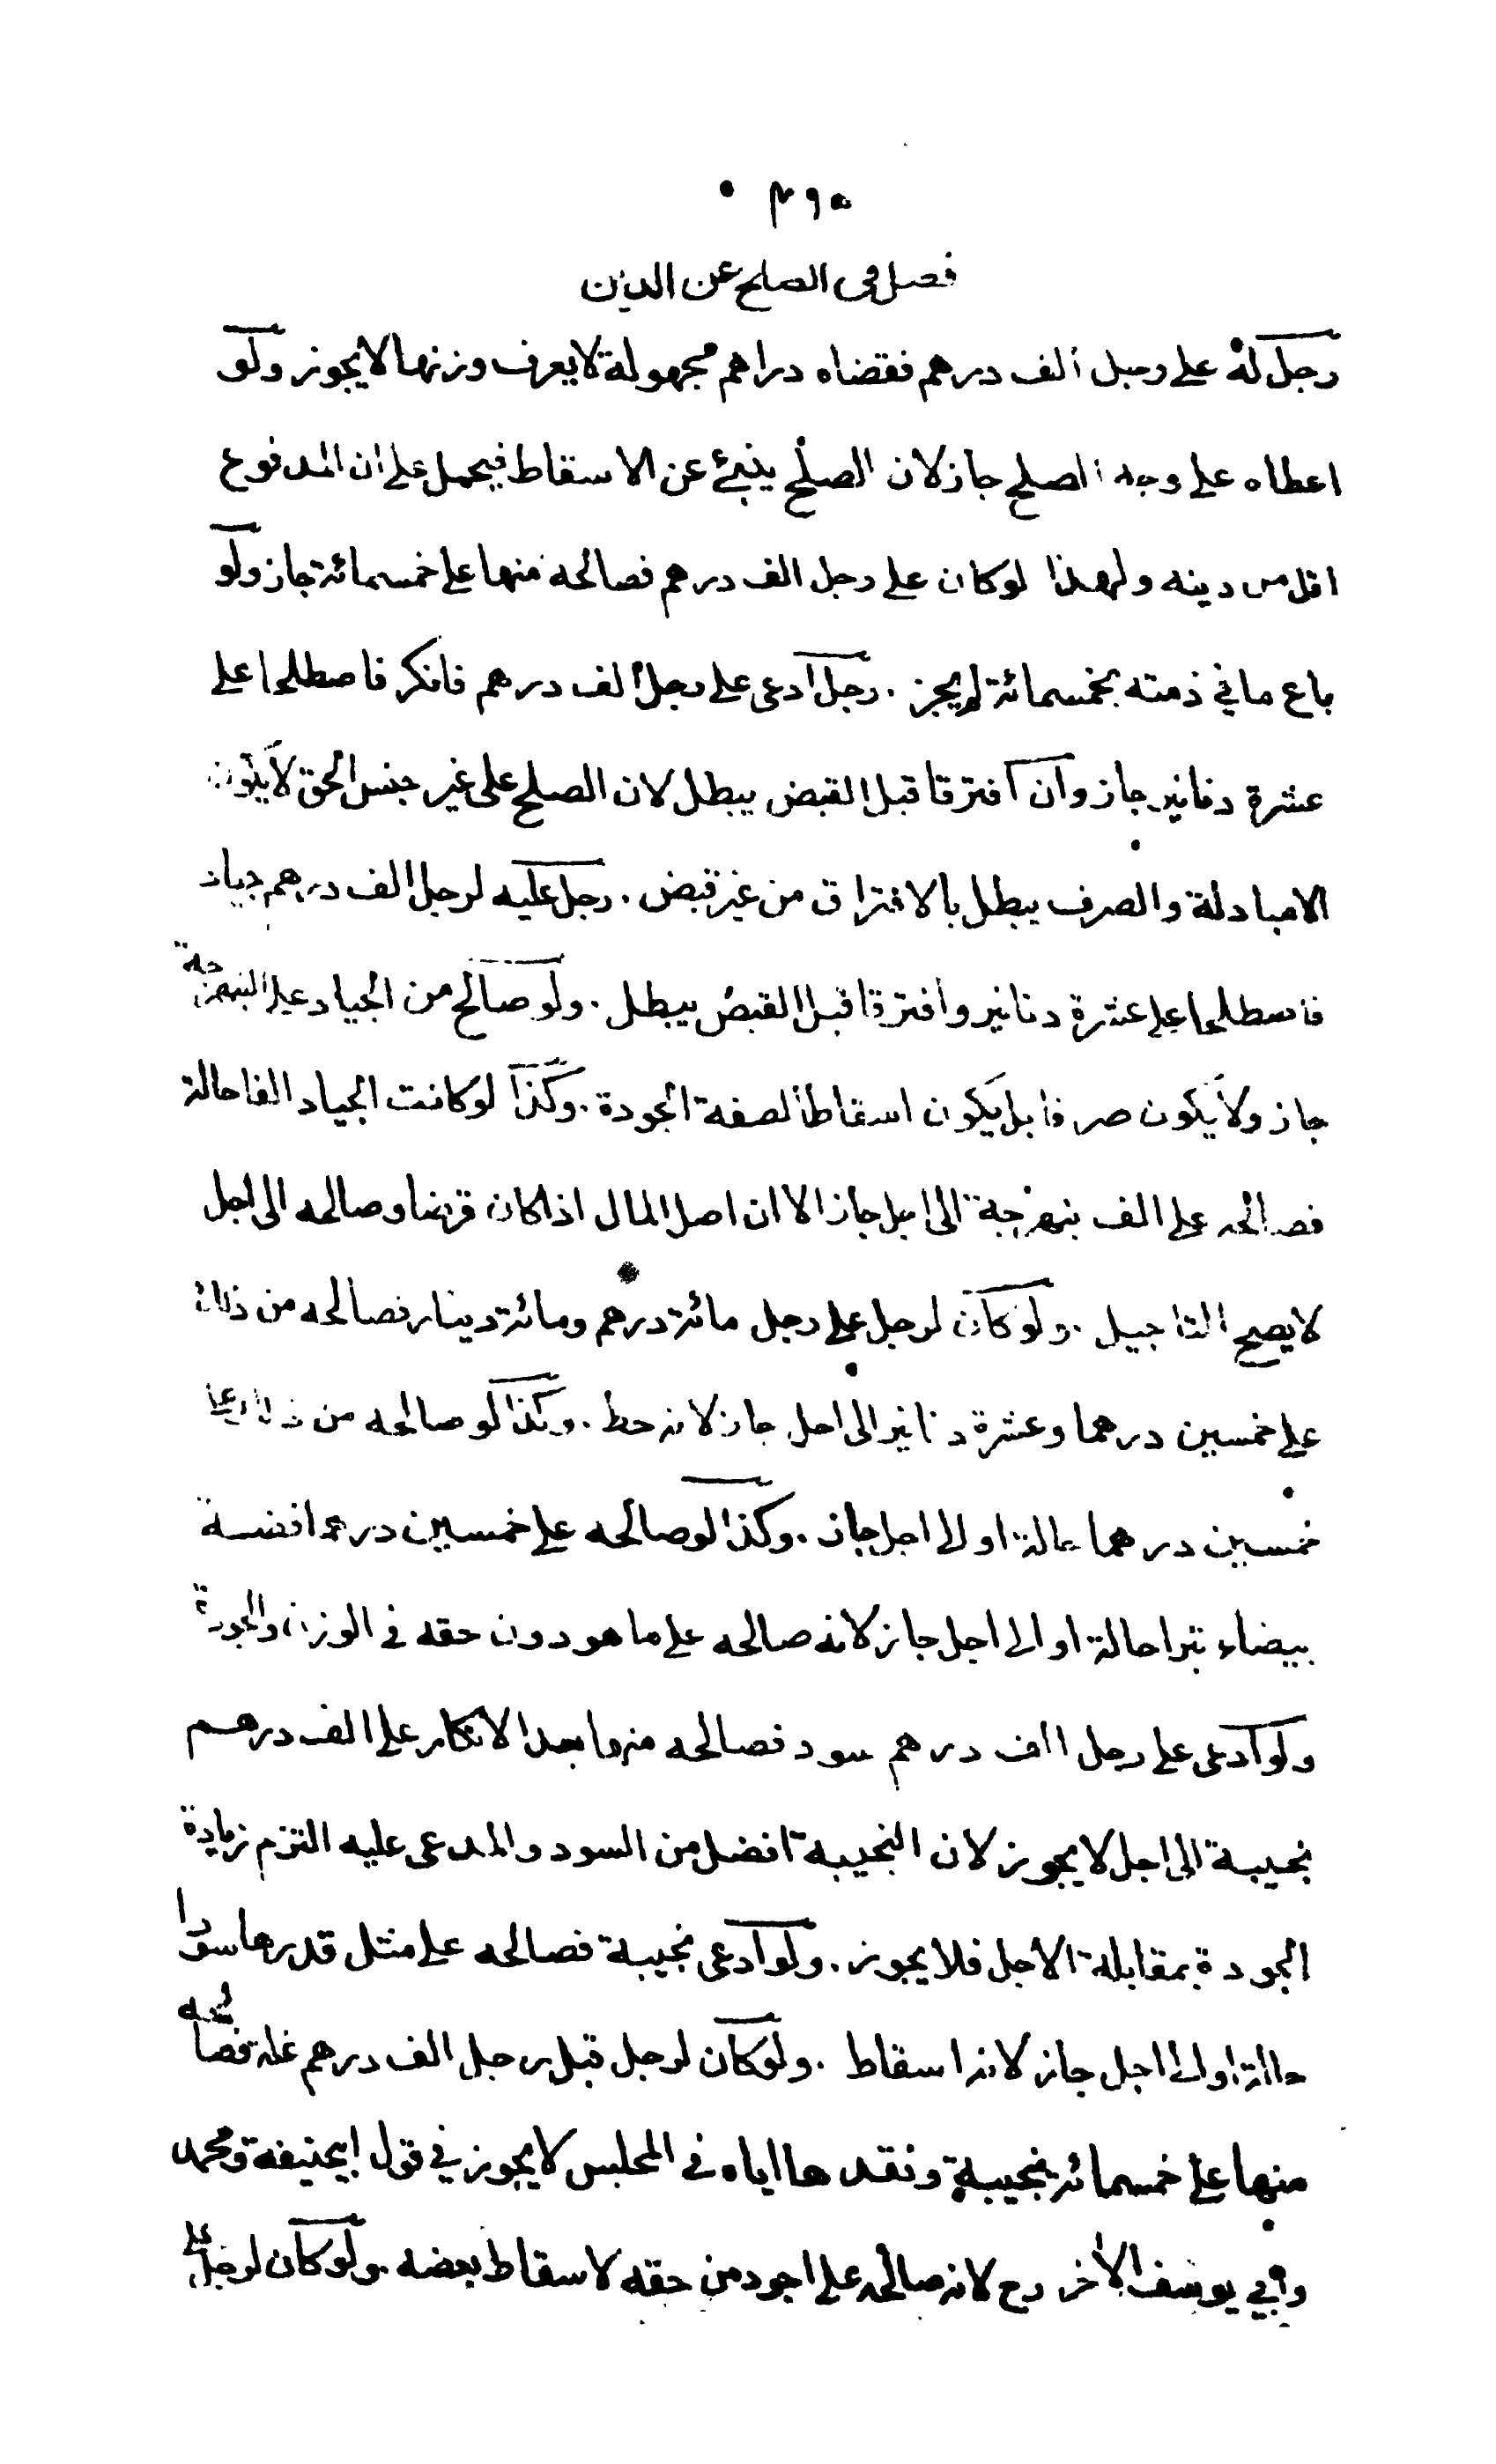 ٣٩٥
فصل في الصلح عن الدين
رجل له على رجل الف درهم فقضاه دراهم مجهولة لا يعرف وزنها لا يجوز ولو
اعطاه على وجه الصلح جاز لان الصلح ينبئ عن الاسقاط فيحمل على ان المدفوع
اقل من دينه ولهذا لو كان على رجل الف درهم فصالحه منها على خمسمائة جاز ولو
باع ما في ذمته بخمسمائة لم يجز . رجل ادعى على رجل الف درهم فانكر فاصطلحا على
عشرة دنانير جاز وان افترقا قبل القبض يبطل لان الصلح على غير جنس الحق لا يكون
الا مبادلة والصرف يبطل بالافتراق من غير قبض . رجل عليه لرجل الف درهم جياد
فاصطلحا على عشرة دنانير وافترقا قبل القبض يبطل . ولو صالح من الجياد على النبهرجة
جاز ولا يكون صرفا بل يكون اسقاطا لصفة الجودة . وكذا لو كانت الجياد الفا حالة
فصالحه على الف نبهرجة الى اجل جاز الا ان اصل المال اذا كان قرضا وصالحه الى اجل
لا يصح التاجيل . ولو كان لرجل على رجل مائة درهم ومائة دينار فصالحه من ذلك
على خمسين درهما وعشرة دنانير الى اجل جاز لانه حط . وكذا لو صالحه من ذلك على
خمسين درهما حالة او الى اجل جاز . وكذا لو صالحه على خمسين درهما فضة
بيضاء تبرا حالة او الى اجل جاز لانه صالحه على ما هو دون حقه في الوزن والجودة
ولو ادعى على رجل الف درهم سود فصالحه منها بعد الانكار على الف درهم
نجيبة الى اجل لا يجوز لان النجيبة افضل من السود والمدعى عليه التزم زيادة
الجودة بمقابلة الاجل فلا يجوز . ولو ادعى نجيبة فصالحه على مثل قدرها سودا
حالة او الى اجل جاز لانه اسقاط . ولو كان لرجل قبل رجل الف درهم غلة فصالحه
منها على خمسمائة نجيبة ونقدها اياه في المجلس لا يجوز في قول ابيحنيفة ومحمد
وابي يوسف الآخر رح لانه صالحه على اجود من حقه لاسقاط بعضه . ولو كان لرجل على